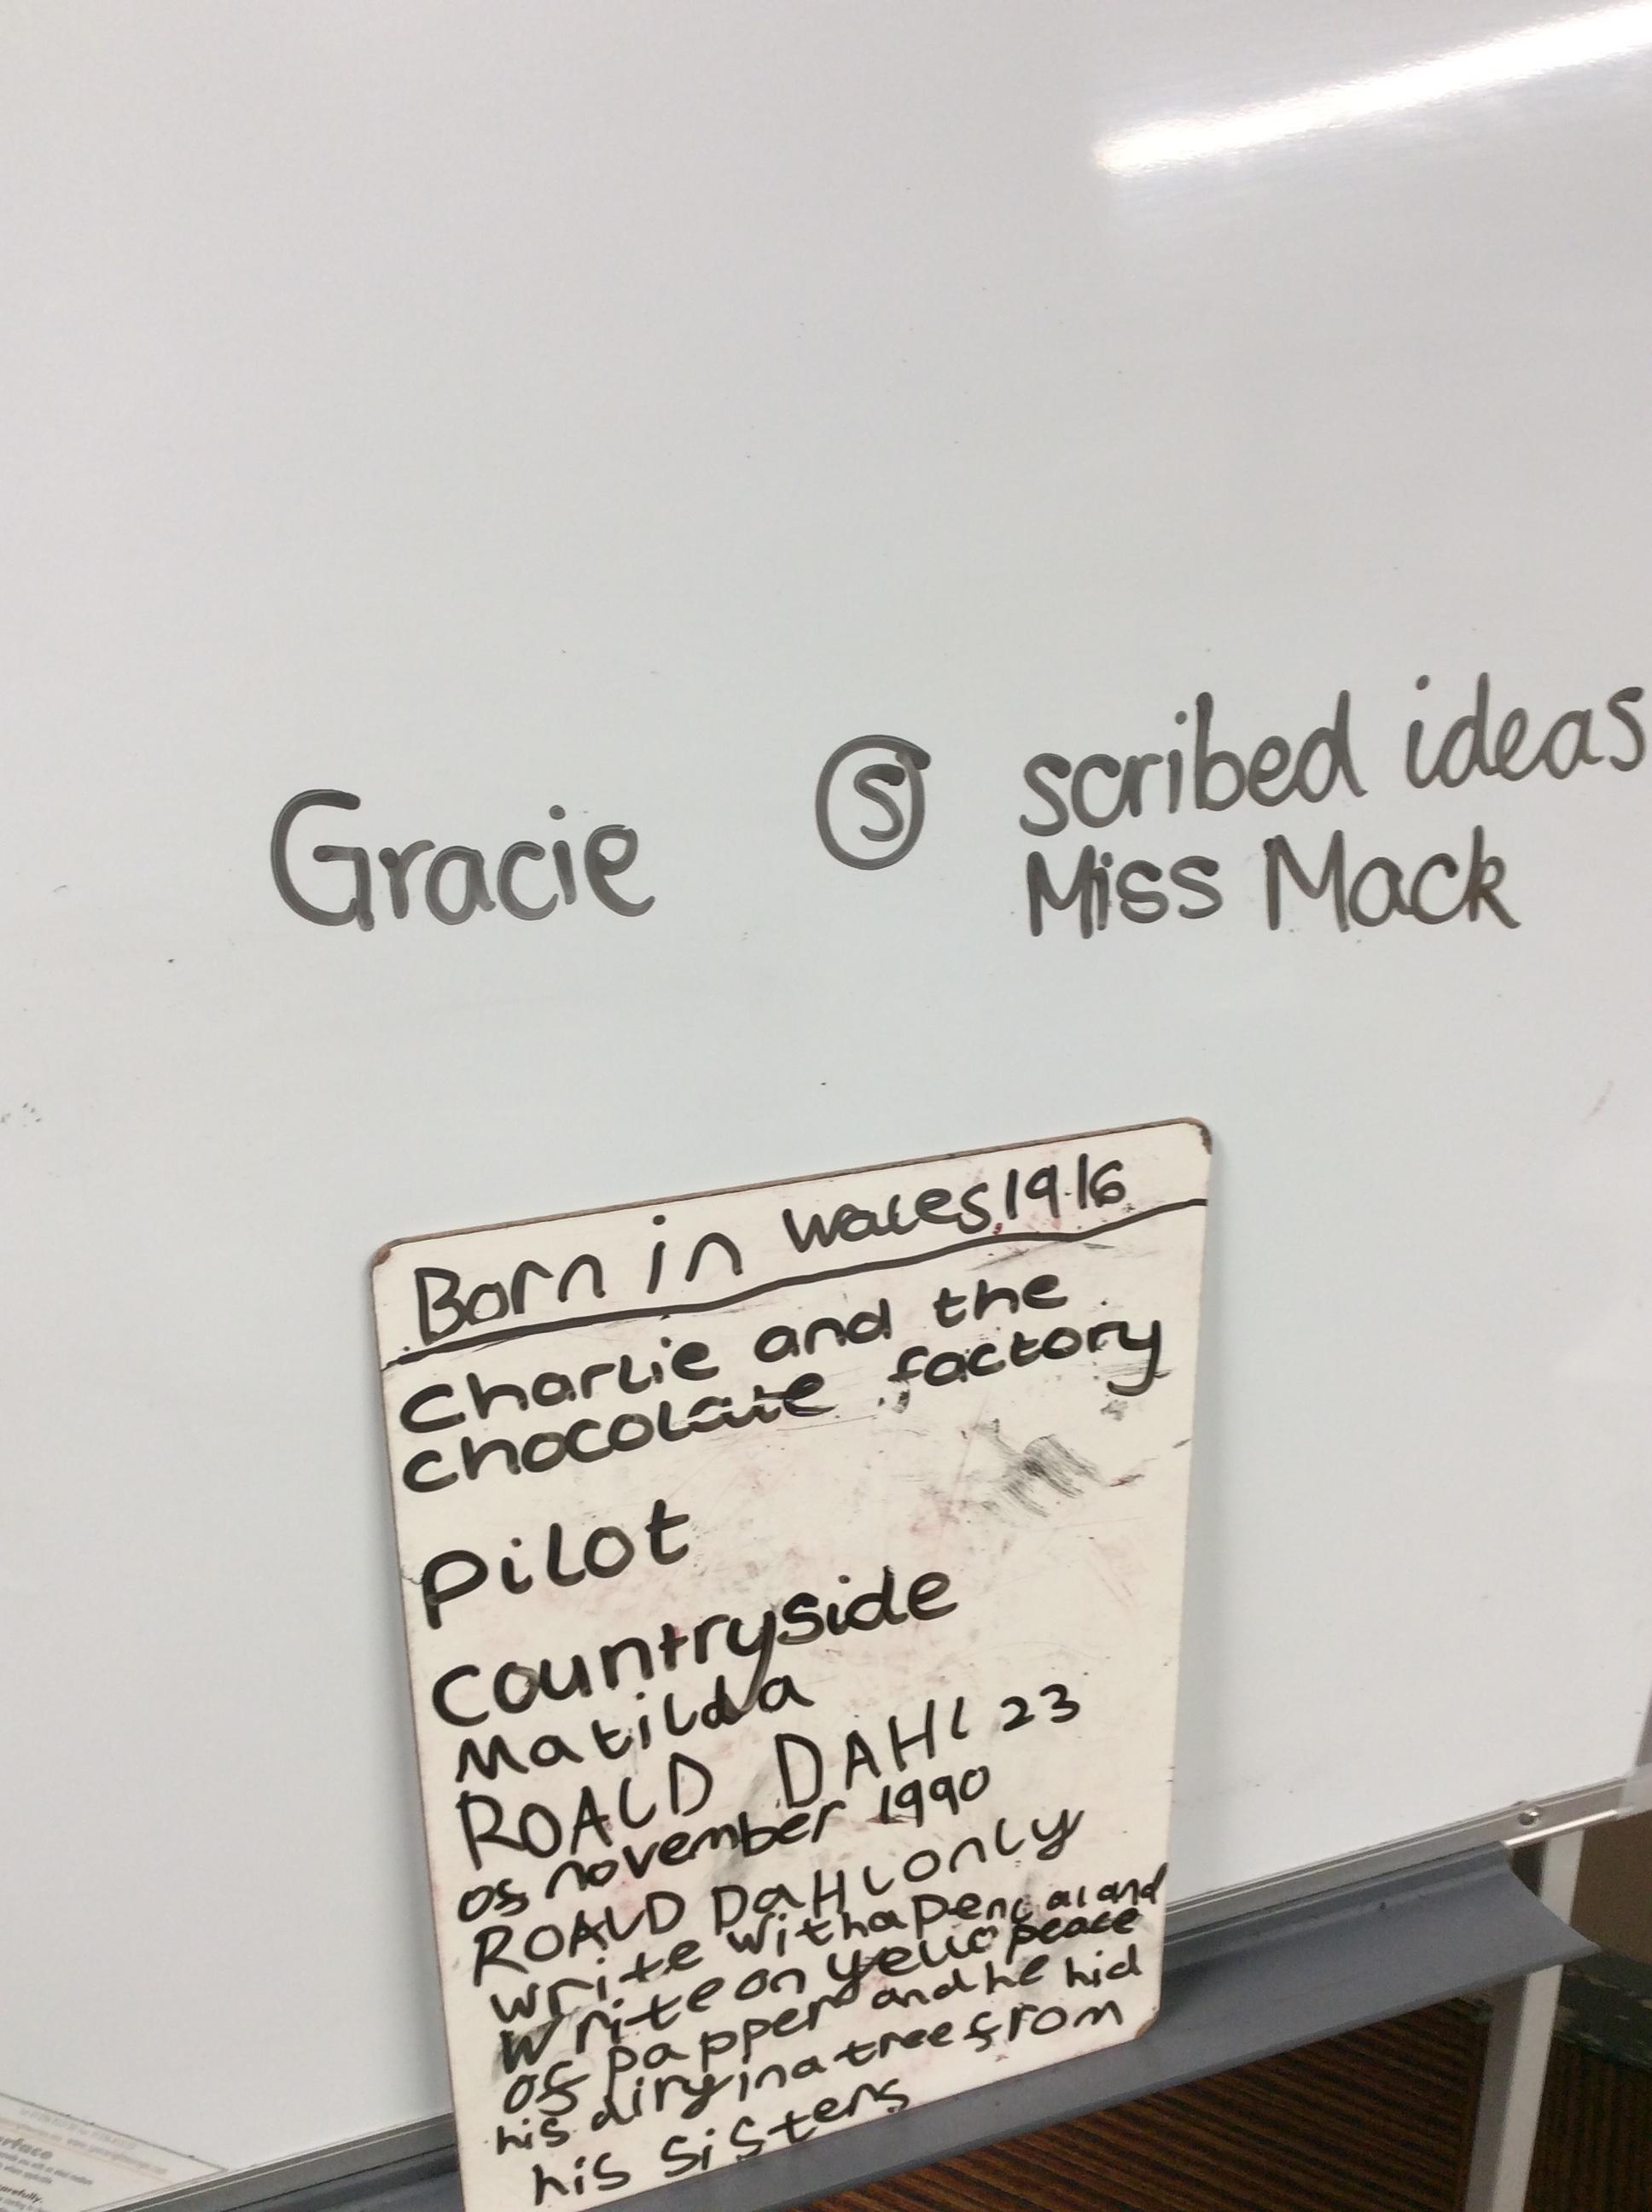 Gracie
Ⓢ
scribed ideas
Miss Mack
Born in Wales 1916
Charlie and the
chocolate factory
Pilot
Countryside
Matilda
ROALD DAHL 23
of november 1990
ROALD DaHL only
write with a pencal and
write on yello peace
of papper and he hid
his diry in a tree from
his sisters